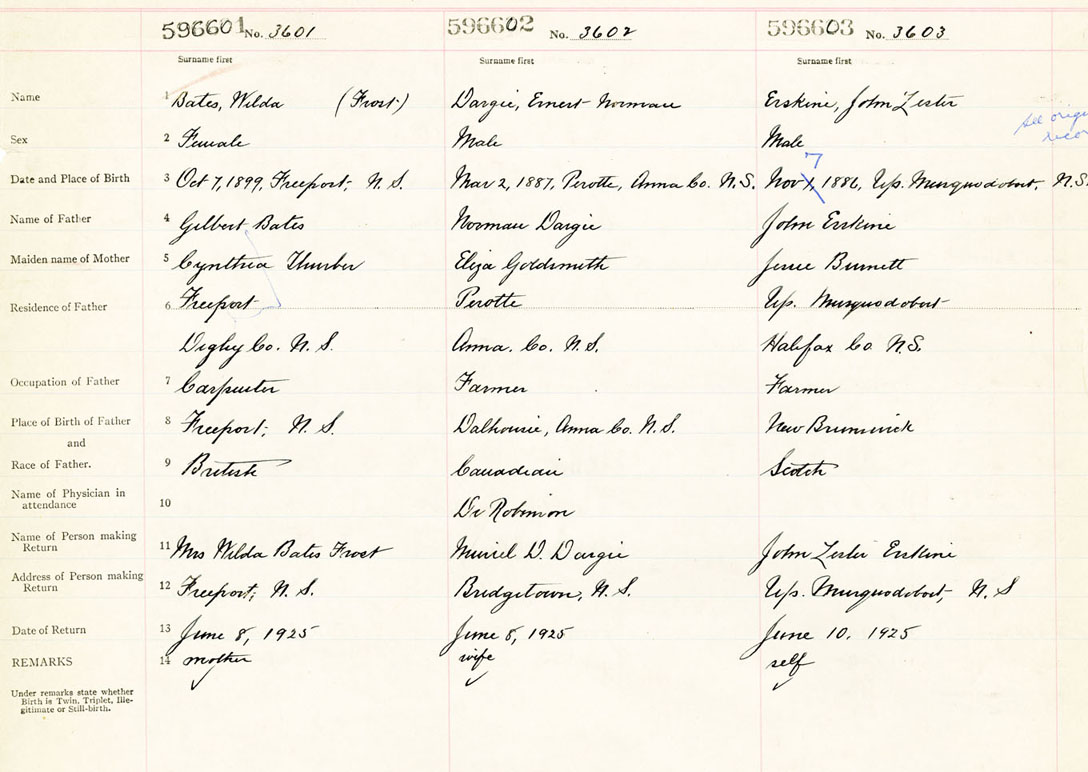 596601 No. 3601 596602 No. 3602 596603 No. 3603
Surname first Surname first Surname first
Name 1 Bates, Wilda (Frost) Dargie, Ernest Norman Erskine, John Lester
See orig
Sex 2 Female Male Male
7
Date and Place of Birth 3 Oct 7, 1899, Freeport, N.S. Mar 2, 1887, Perotte, Anna Co. N.S. Nov 1, 1886, Up. Musquodoboit, N.S.
Name of Father 4 Gilbert Bates Norman Dargie John Erskine
Maiden name of Mother 5 Cynthia Thurber Eliza Goldsmith Jessie Burnett
Residence of Father 6 Freeport Perotte Up. Musquodoboit
Digby Co. N.S. Anna. Co. N.S. Halifax Co N.S.
Occupation of Father 7 Carpenter Farmer Farmer
Place of Birth of Father 8 Freeport, N.S. Dalhousie, Anna Co. N.S. New Brunswick
and
Race of Father. 9 British Canadian Scotch
Name of Physician in
attendance 10 Dr Robinson
Name of Person making
Return 11 Mrs Wilda Bates Frost Muriel D. Dargie John Lester Erskine
Address of Person making
Return 12 Freeport, N.S. Bridgetown, N.S. Up. Musquodoboit, N.S
Date of Return 13 June 8, 1925 June 8, 1925 June 10. 1925
REMARKS 14 mother wife self
Under remarks state whether
Birth is Twin, Triplet, Ille-
gitimate or Still-birth.